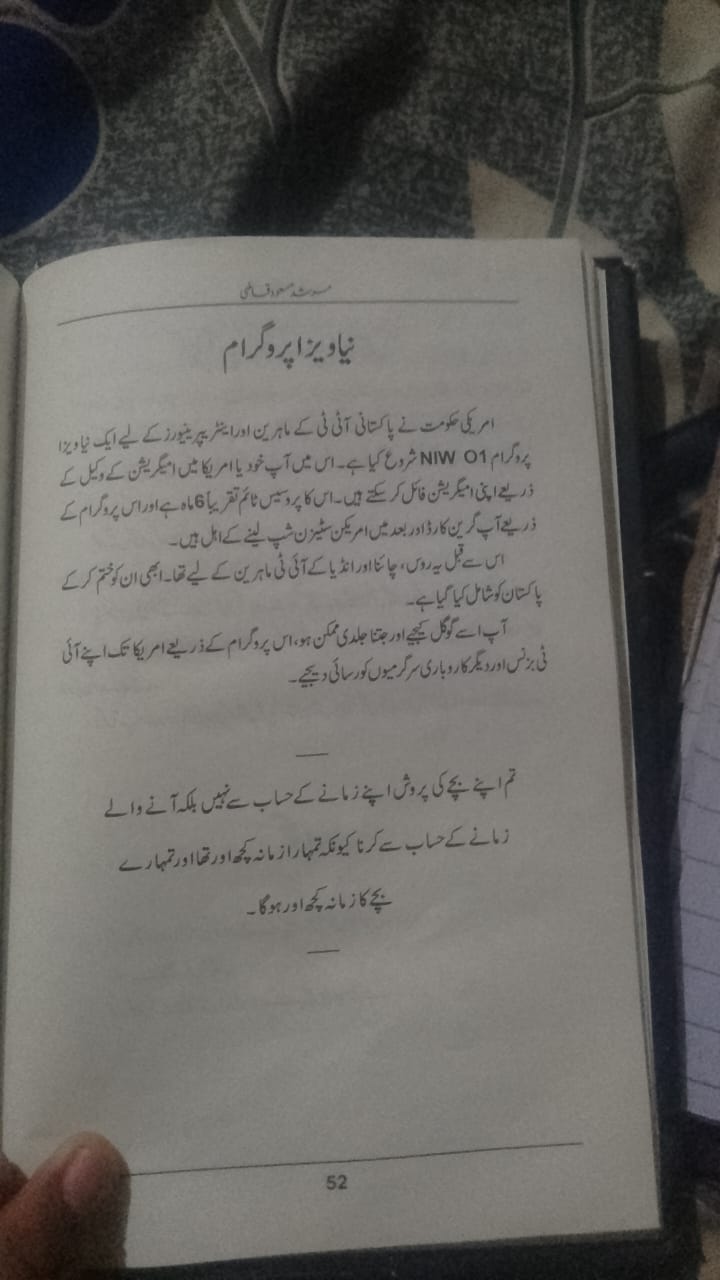 مرشد مسعود قاظمی
نیا ویزا پروگرام
امریکی حکومت نے پاکستانی آئی ٹی کے ماہرین اور اینٹرپیرینیورز کے لیے ایک نیا ویزا
پروگرام NIW O1 شروع کیا ہے۔ اس میں آپ خود یا امریکا میں امیگریشن کے وکیل کے
ذریعے اپنی امیگریشن فائل کر سکتے ہیں۔ اس کا پروسیس ٹائم تقریباً 6 ماہ ہے اور اس پروگرام کے
ذریعے آپ گرین کارڈ اور بعد میں امریکن سٹیزن شپ لینے کے اہل ہیں۔
اس سے قبل یہ روس، چائنا اور انڈیا کے آئی ٹی ماہرین کے لیے تھا۔ ابھی ان کو ختم کر کے
پاکستان کو شامل کیا گیا ہے۔
آپ اسے گوگل کیجیے اور جتنا جلدی ممکن ہو، اس پروگرام کے ذریعے امریکا تک اپنے آئی
ٹی بزنس اور دیگر کاروباری سرگرمیوں کو رسائی دیجیے۔
تم اپنے بچے کی پروش اپنے زمانے کے حساب سے نہیں بلکہ آنے والے
زمانے کے حساب سے کرنا کیونکہ تمہارا زمانہ کچھ اور تھا اور تمہارے
بچے کا زمانہ کچھ اور ہوگا۔
52